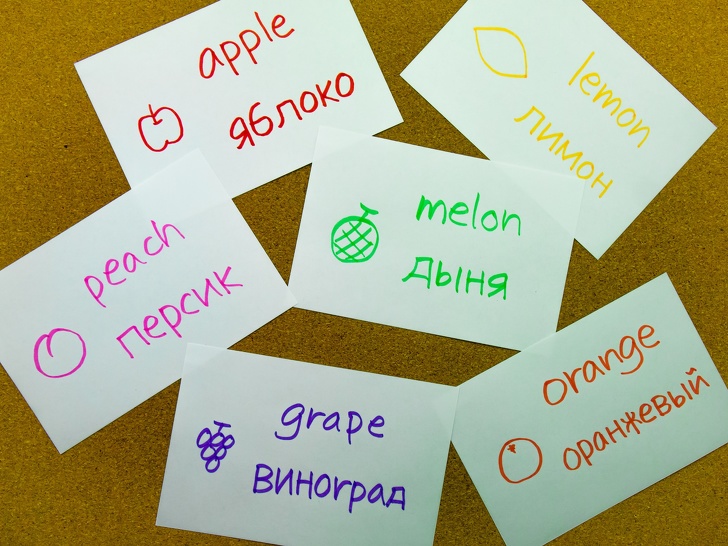 apple
яблоко
lemon
лимон
peach
персик
melon
дыня
grape
виноград
orange
оранжевый